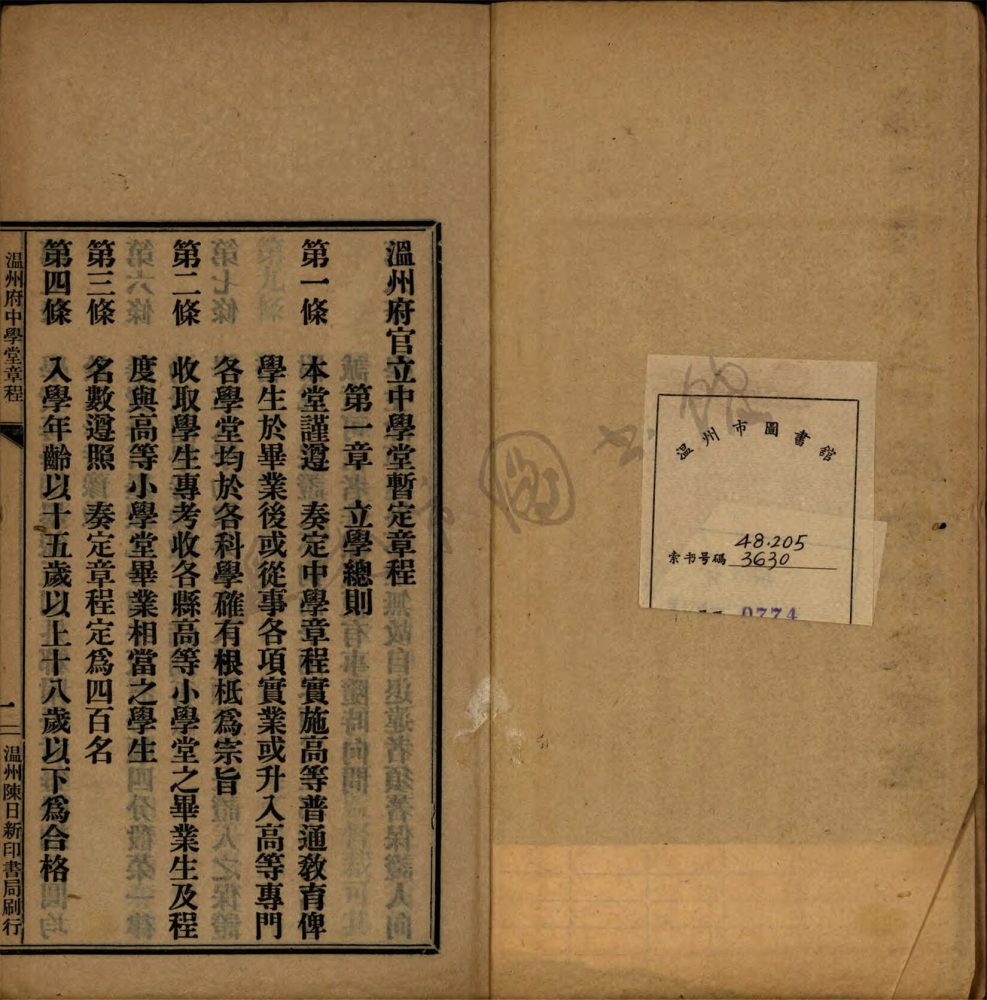 溫州府官立中學堂暫定章程
第一章　立學總則
第一條　本堂謹遵　奏定中學章程實施高等普通教育俾
學生於畢業後或從事各項實業或升入高等專門
各學堂均於各科學確有根柢爲宗旨
第二條　收取學生專考收各縣高等小學堂之畢業生及程
度與高等小學堂畢業相當之學生
第三條　名數遵照　奏定章程定爲四百名
第四條　入學年齡以十五歲以上十八歲以下爲合格
温州府中學堂章程
一
温州陳日新印書局刷行
温州市圖書館
索书号碼 48.205
3630
0774